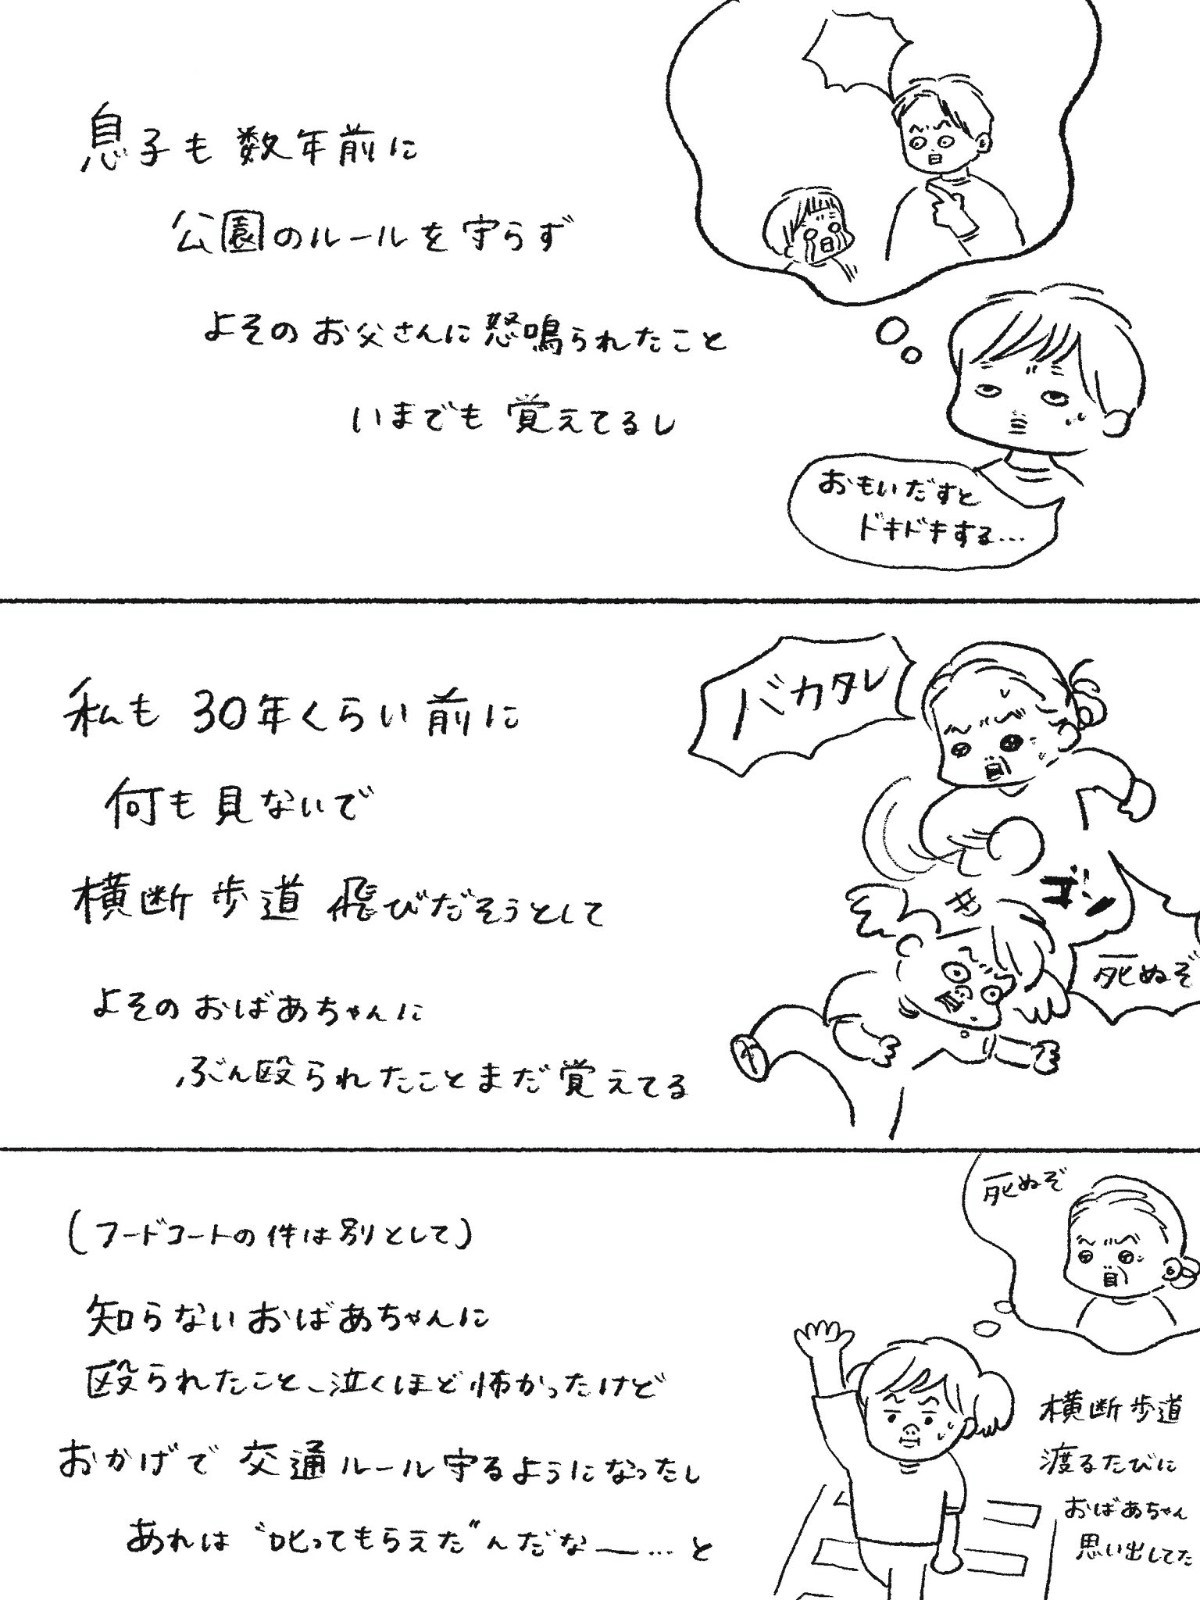 息子も数年前に
公園のルールを守らず
よそのお父さんに怒鳴られたこと
いまでも覚えてるし
おもいだすと
ドキドキする…
私も30年くらい前に
何も見ないで
横断歩道飛びだそうとして
よそのおばあちゃんに
ぶん殴られたことまだ覚えてる
バカタレ
ゴン
死ぬぞ
(フードコートの件は別として)
知らないおばあちゃんに
殴られたこと、泣くほど怖かったけど
おかげで交通ルール守るようになったし
あれは〝叱ってもらえた〟んだな〜…と
死ぬぞ
横断歩道
渡るたびに
おばあちゃん
思い出してた